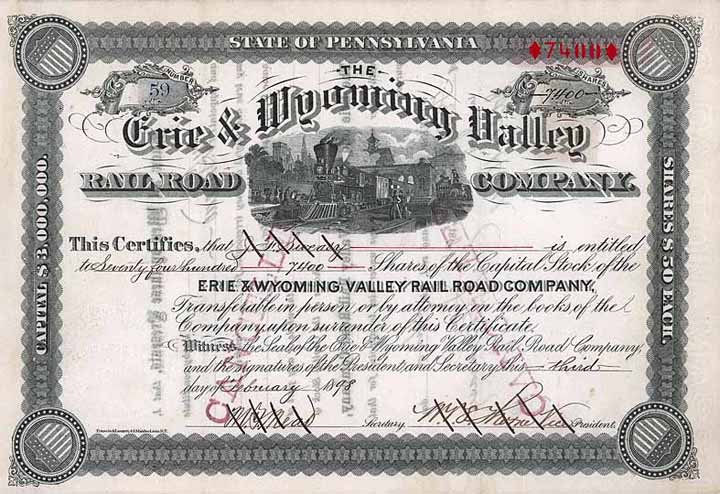 STATE OF PENNSYLVANIA
♦7400♦
NUMBER
59
SHARES
7400
THE
Erie & Wyoming Valley
RAIL ROAD COMPANY.
CAPITAL $3,000,000.
SHARES $50 EACH.
This Certifies, that is entitled
to Seventy four hundred 7400 Shares of the Capital Stock of the
ERIE & WYOMING VALLEY RAIL ROAD COMPANY,
Transferable in person or by attorney on the books of the
Company upon surrender of this Certificate.
Witness, The Seal of the Erie & Wyoming Valley Rail Road Company,
and the signatures of the President and Secretary this third
day of February 1898
Secretary. Vice President.
CANCELLED